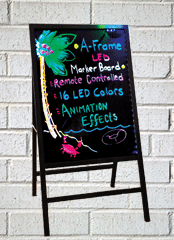 A-Frame
LED
Marker Board
Remote Controlled
16 LED Colors
Animation
Effects